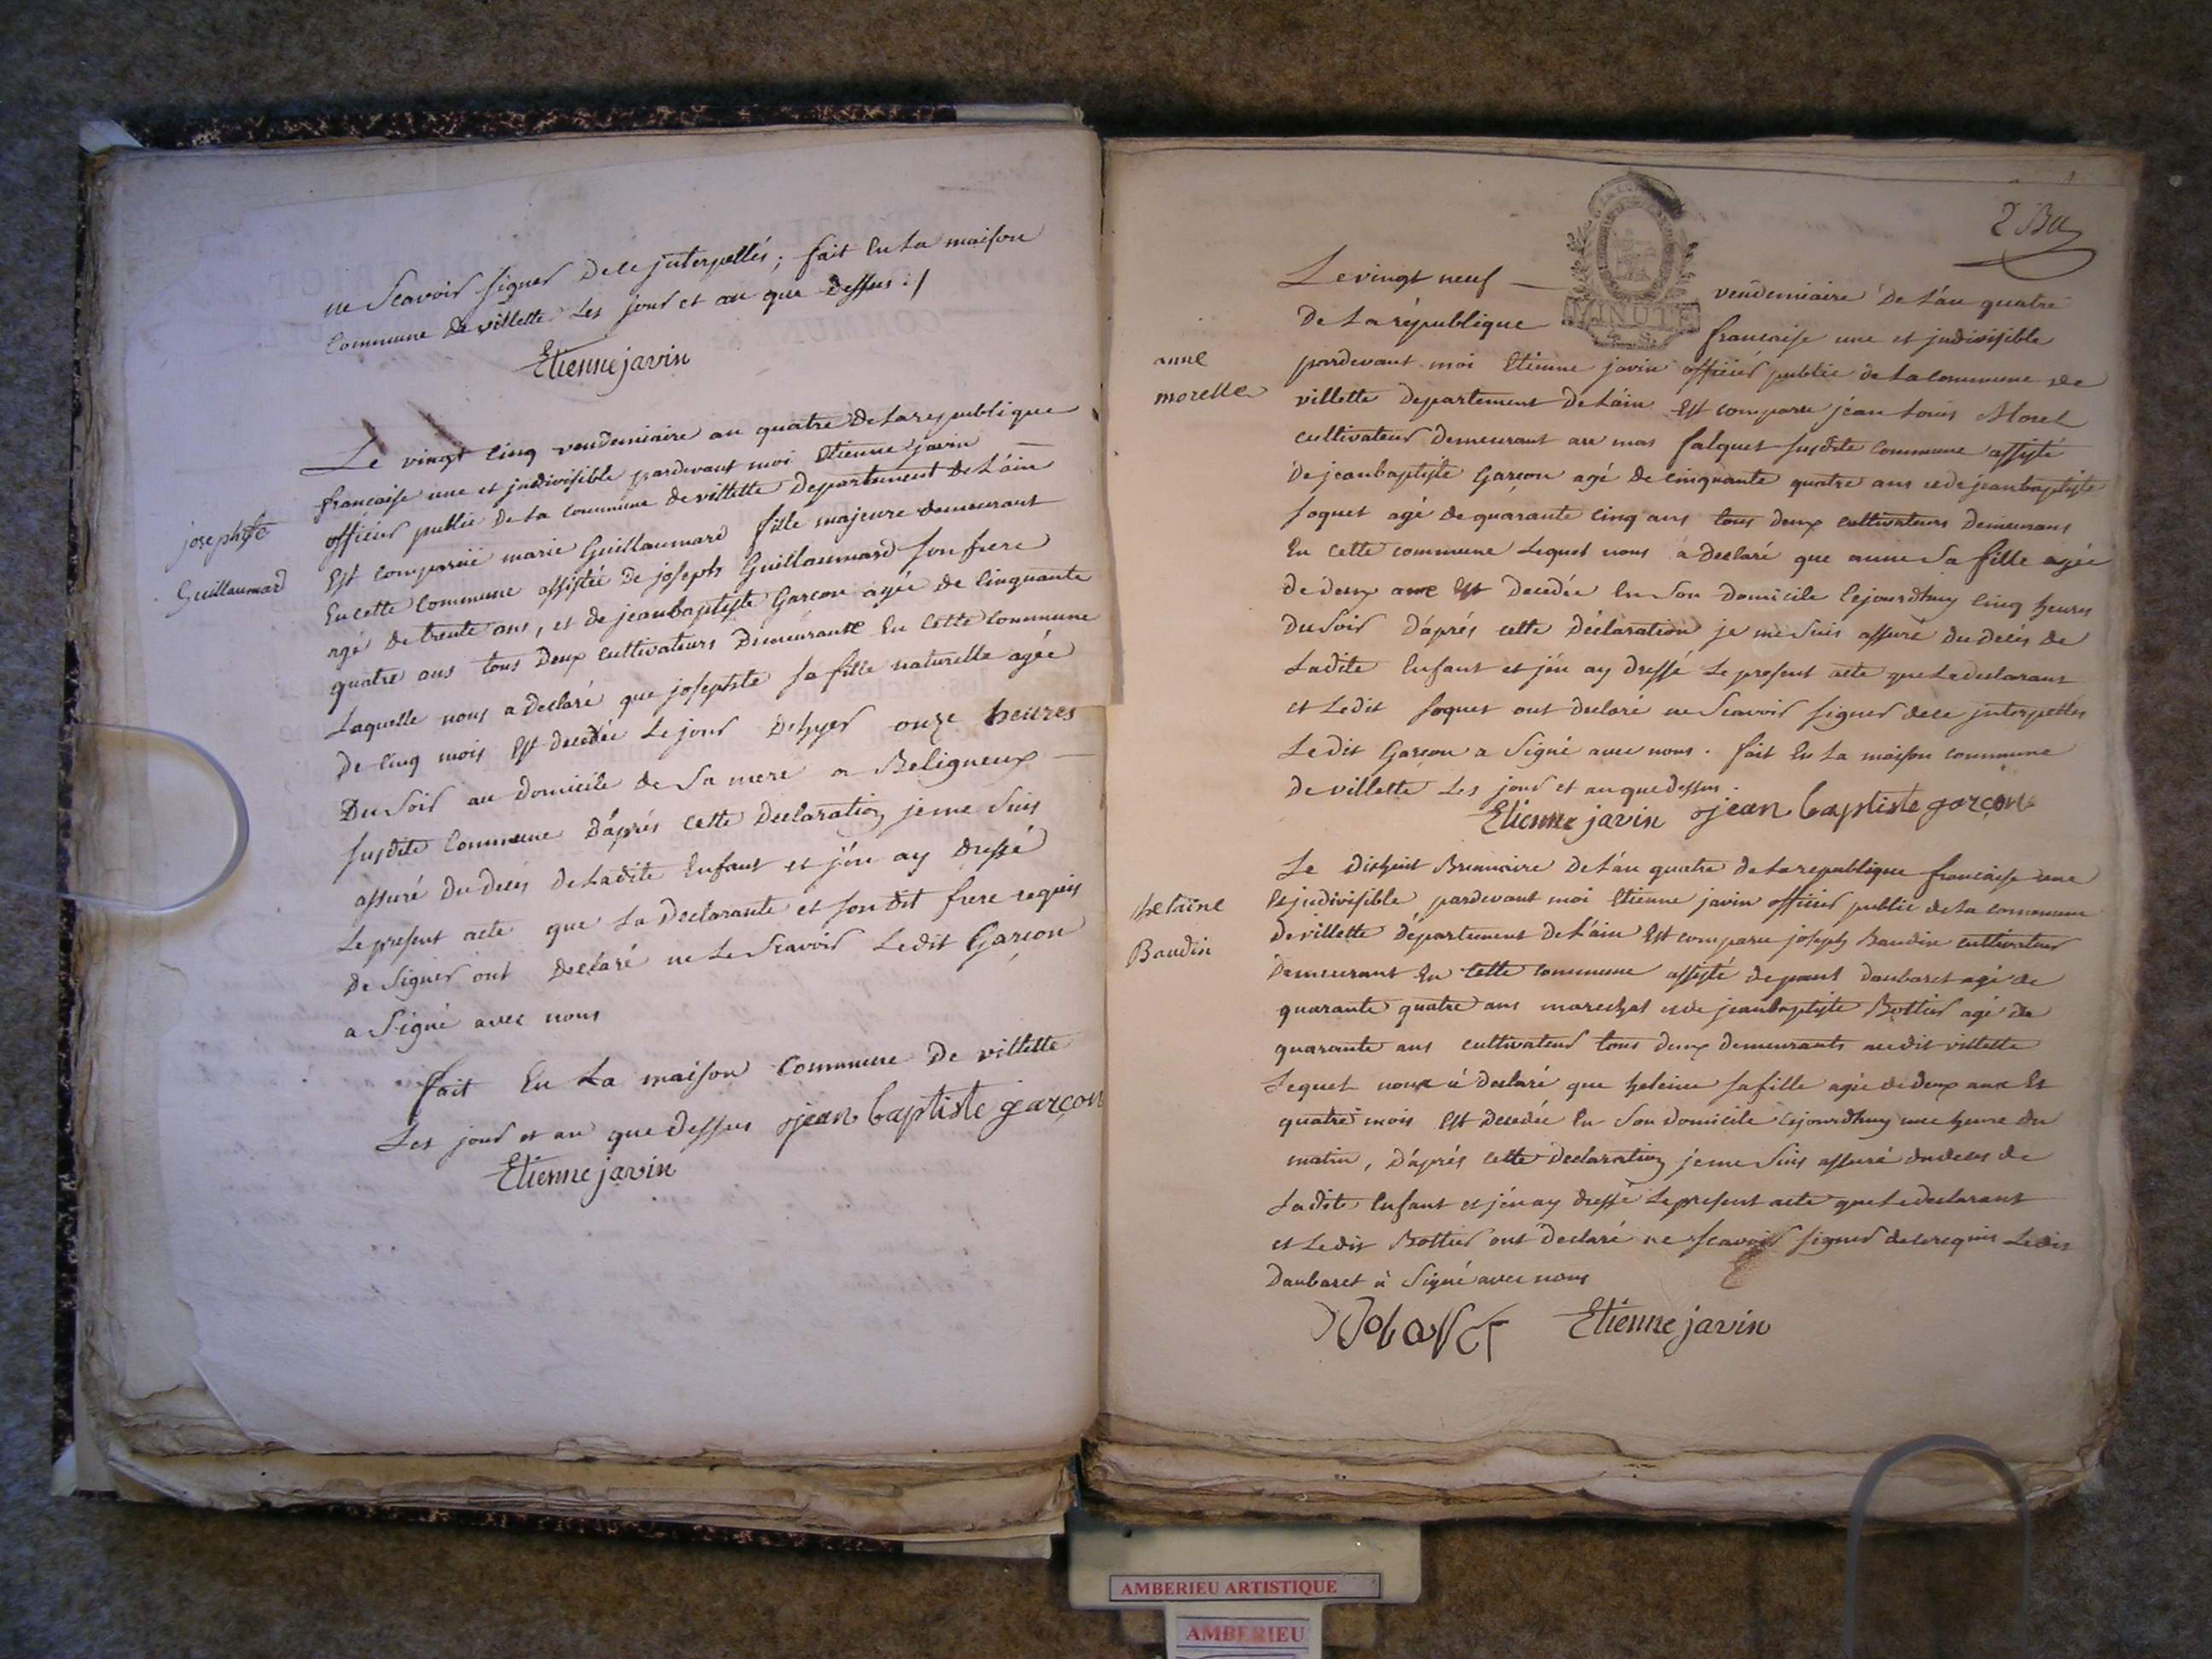 ne Scavoir signer de ce jnterpellés; fait En La maison
Commune de villette Les jour et an que dessus ./
Etienne javin
Le vingt cinq vendemiaire an quatre De La republique
francaise une et jndivisible pardevant moi Etienne javin
officier public De La Commune de villette Departement De L'ain
josephte
Guillaumard
Est comparuë marie Guillaumard fille majeure demeurant
En cette Commune assistée De joseph Guillaumard son frere
agé de trente ans, et de jeanbaptiste Garcon agée de Cinquante
quatre ans tous Deux cultivateurs Demeurante En Cette Commune
Laquelle nous a declaré que josephte sa fille naturelle agée
De Cinq mois Est decedée Le jour D'hyer onze heures
Du Soir au Domicile de Sa mere a Beligneux
susdite Commune D'áprés Cette Declaration je me Suis
assuré Du Deces De Ladite Enfant et j'én ay dressé
Le present acte que La Declarante et son dit frere requis
De Signer ont Declaré ne Le Scavoir Ledit Garcon
a Signé avec nous
fait En La maison Commune De villette
Les jour et an que Dessus jean baptiste garçon
Etienne javin
2 Bu
MINUTE
Le vingt neuf vendemiaire De L'an quatre
De La république francaise une et jndivisible
anne
morelle
pardevant moi Etienne javin officier public de La Commune de
villette Departement De L'ain Est comparu jean Louis Morel
cultivateur Demeurant au mas falquet susdite Commune assisté
De jeanbaptiste Garçon agé De cinquante quatre ans et de jeanbaptiste
foquet agé de quarante Cinq ans tous Deux cultivateurs Demeurans
En Cette Commune Lequel nous a Declaré que anne Sa fille agée
De Deux ans Est Decedée En Son Domicile Cejourdhuy Cinq heures
Du Soir D'áprés Cette Déclaration je me Suis assuré du Decés de
Ladite Enfant et j'én ay Dressé Le present acte que Le declarant
et Ledit foquet ont declaré ne Scavoir signer de ce jnterpellés
Ledit Garçon a Signé avec nous. fait En La maison Commune
De villette Les jour et an que dessus.
Etienne javin jean baptiste garçon
Le Dixhuit Brumaire De L'an quatre de La republique francaise une
helaine
Baudin
Et jndivisible pardevant moi Etienne javin officier public de La Commune
De villette Département De L'ain Est comparu joseph Baudin cultivateur
Demeurant En Cette Commune assisté de Daubaret agé de
quarante quatre ans marechal et de jeanbaptiste Bottier agé de
quarante ans cultivateur tous Deux Demeurants audit villette
Lequel nous a declaré que heleine sa fille agée de deux ans Et
quatre mois Est decedée En Son Domicile Cejourdhuy une heure Du
matin, D'áprés Cette Declaration je me Suis assuré du deces de
Ladite Enfant et j'én ay dressé Le present acte que Le declarant
et Ledit Bottier ont Declaré ne scavoir signer de ce requis Ledit
Daubaret à Signé avec nous
Etienne javin
AMBERIEU ARTISTIQUE
AMBERIEU